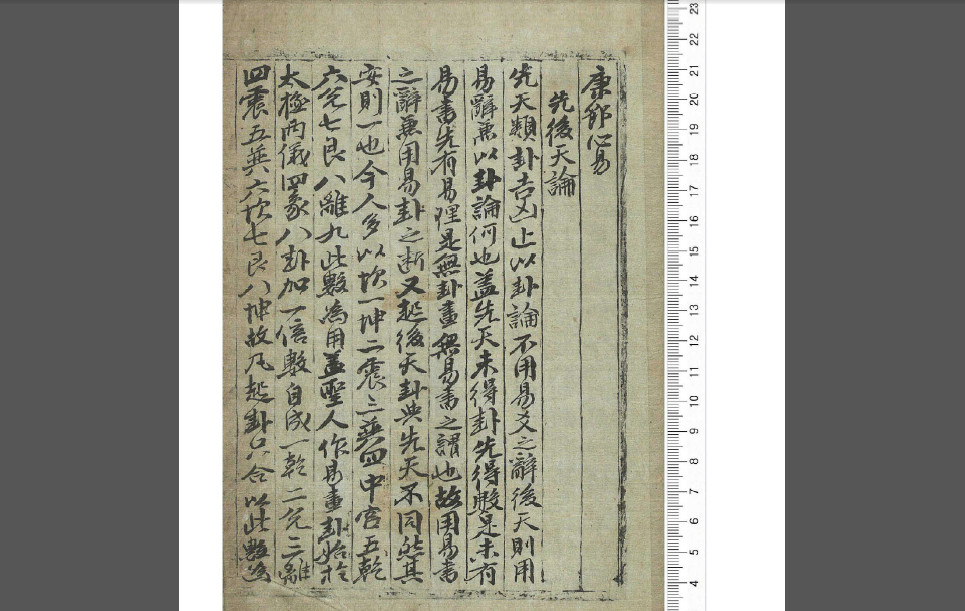 康節心易
先後天論
先天類卦吉凶止以卦論不用易爻之辭後天則用
易辭兼以卦論何也盖先天未得卦先得數是未有
易書先有易理是無卦畫無易書之謂也故用易書
之辭兼用易卦之断又起後天卦與先天不同然其
安則一也今人多以坎一坤二震三巽四中宮五乾
六兌七艮八離九此數為用盖聖人作易畫卦始於
太極兩儀四象八卦加一倍數自成一乾二兌三離
四震五巽六坎七艮八坤故凡起卦只合以此數為
23
22
21
20
19
18
17
16
15
14
13
12
11
10
9
8
7
6
5
4